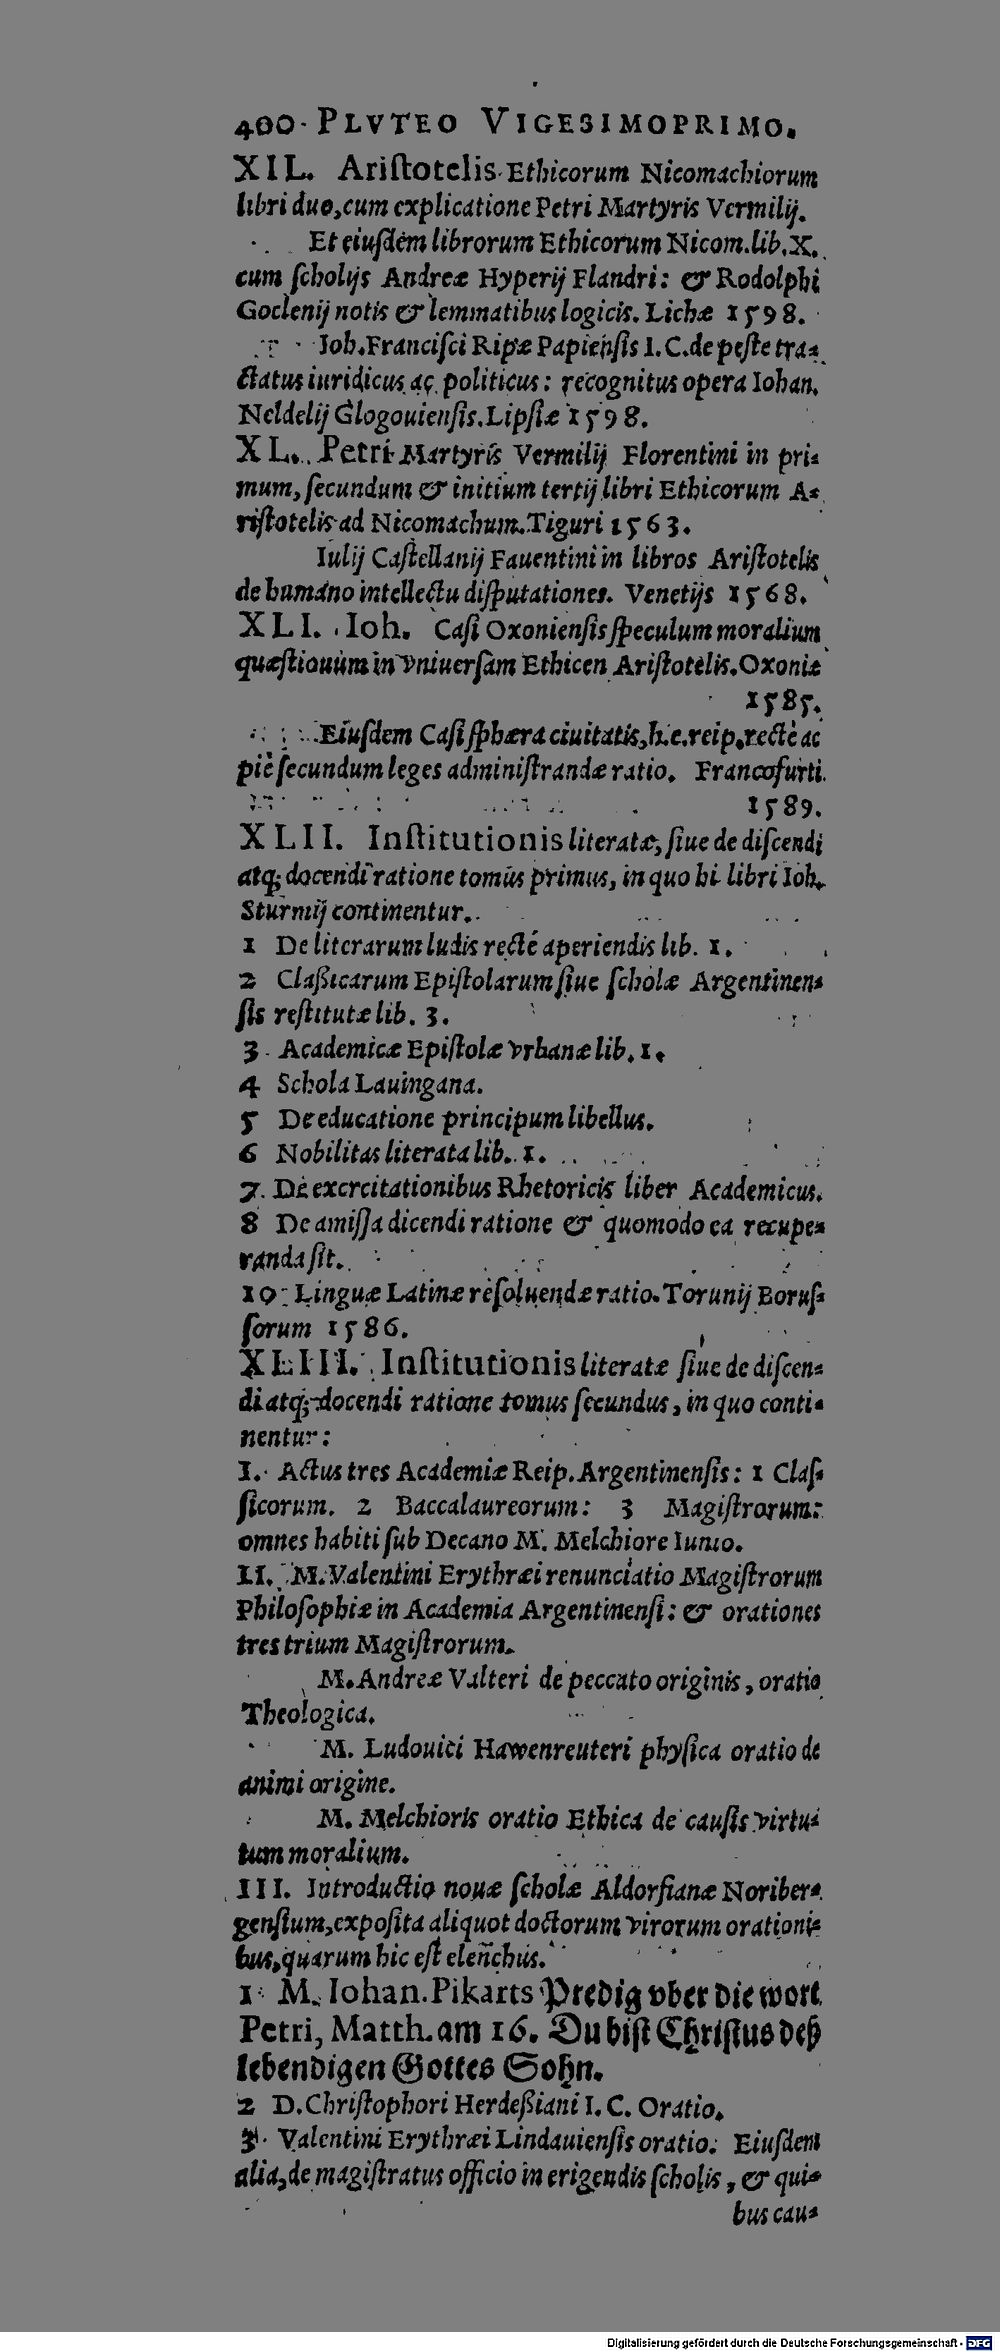 400 PLVTEO VIGESIMOPRIMO.
XIL. Ariſtotelis Ethicorum Nicomachiorum
libri duo, cum explicatione Petri Martyris Vermilij.
Et eiuſdem librorum Ethicorum Nicom. lib. X.
cum ſcholijs Andreæ Hyperij Flandri: & Rodolphi
Goclenij notis & lemmatibus logicis. Lichæ 1598.
Ioh. Franciſci Ripæ Papienſis I. C. de peſte tra-
ctatus iuridicus ac politicus: recognitus opera Iohan.
Neldelij Glogouienſis. Lipſiæ 1598.
XL. Petri Martyris Vermilij Florentini in pri-
mum, ſecundum & initium tertij libri Ethicorum A-
riſtotelis ad Nicomachum. Tiguri 1563.
Iulij Caſtellanij Fauentini in libros Ariſtotelis
de humano intellectu diſputationes. Venetijs 1568.
XLI. Ioh. Caſi Oxonienſis ſpeculum moralium
quæſtionum in vniuerſam Ethicen Ariſtotelis. Oxoniæ
1585.
Eiuſdem Caſi ſphæra ciuitatis, h. e. reip. rectè ac
piè ſecundum leges adminiſtrandæ ratio. Francofurti.
1589.
XLII. Inſtitutionis literatæ, ſiue de diſcendi
atq; docendi ratione tomus primus, in quo hi libri Ioh.
Sturmij continentur.
1 De literarum ludis rectè aperiendis lib. 1.
2 Claßicarum Epiſtolarum ſiue ſcholæ Argentinen-
ſis reſtitutæ lib. 3.
3 Academicæ Epiſtolæ vrbanæ lib. 1.
4 Schola Lauingana.
5 De educatione principum libellus.
6 Nobilitas literata lib. 1.
7. De exercitationibus Rhetoricis liber Academicus.
8 De amiſſa dicendi ratione & quomodo ea recupe-
randa ſit.
10 Linguæ Latinæ reſoluendæ ratio. Torunij Boruſ-
ſorum 1586.
XLIII. Inſtitutionis literatæ ſiue de diſcen-
di atq; docendi ratione tomus ſecundus, in quo conti-
nentur:
I. Actus tres Academiæ Reip. Argentinenſis: 1 Claſ-
ſicorum. 2 Baccalaureorum: 3 Magiſtrorum:
omnes habiti ſub Decano M. Melchiore Iunio.
II. M. Valentini Erythræi renunciatio Magiſtrorum
Philoſophiæ in Academia Argentinenſi: & orationes
tres trium Magiſtrorum.
M. Andreæ Valteri de peccato originis, oratio
Theologica.
M. Ludouici Hawenreuteri phyſica oratio de
animi origine.
M. Melchioris oratio Ethica de cauſis virtu-
tum moralium.
III. Introductio nouæ ſcholæ Aldorfianæ Noriber-
genſium, expoſita aliquot doctorum virorum orationi-
bus, quarum hic eſt elenchus.
1 M. Iohan. Pikarts Predig vber die wort
Petri, Matth. am 16. Du biſt Chriſtus deß
lebendigen Gottes Sohn.
2 D. Chriſtophori Herdeßiani I. C. Oratio.
3 Valentini Erythræi Lindauienſis oratio. Eiuſdem
alia, de magiſtratus officio in erigendis ſcholis, & qui-
bus cau-
Digitalisierung gefördert durch die Deutsche Forschungsgemeinschaft - DFG